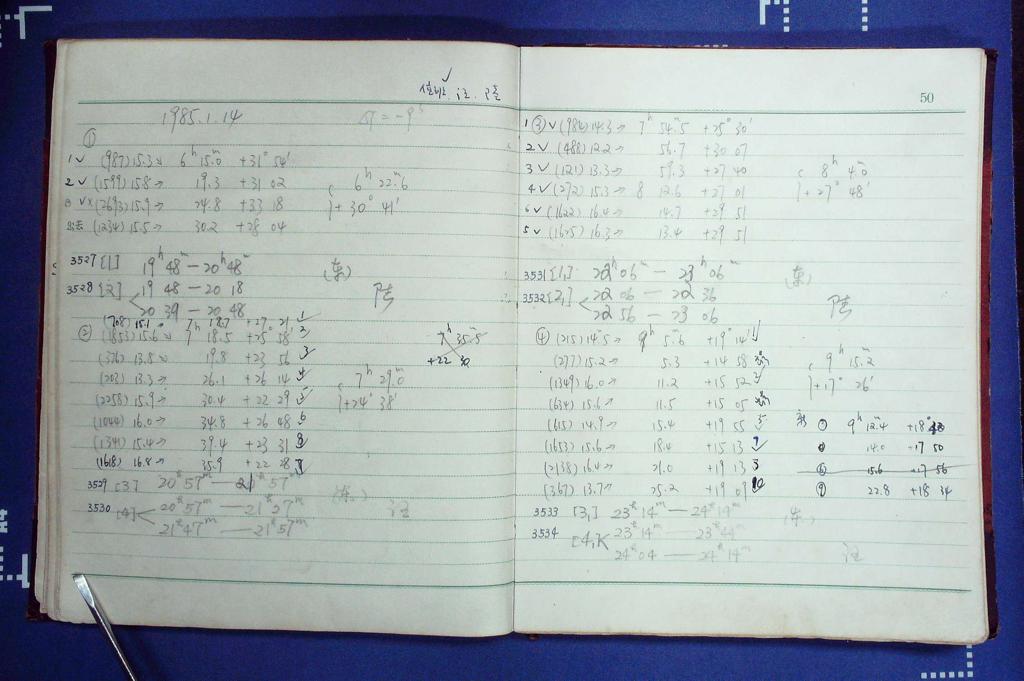 50
1985.1.14
①
1 ✓ (987) 15.3 → 6ʰ 15.0ᵐ +31° 54'
2 ✓ (1599) 15.8 → 19.3 +31 02
✓× (2693) 15.9 → 24.8 +33 18
(1234) 15.5 → 30.2 +28 04
6ʰ 22ᵐ.6
+30° 41'
3527 [1] 19ʰ48ᵐ — 20ʰ48ᵐ (东)
3528 [2] 19 48 — 20 18 陆
20 39 — 20 48
(708) 15.1 7ʰ 18.1 +27 21 1
② (1853) 15.6 7 18.5 +25° 58' 2
(376) 13.8 → 19.8 +23 56 3
(203) 13.3 → 26.1 +26 14 4
(2258) 15.9 → 30.4 +22 29 5
(1044) 16.0 → 34.8 +26 48 6
(1341) 15.4 → 39.4 +23 31 8
(1618) 16.8 → 35.9 +22 28 7
7ʰ 35ᵐ.5
+22 30
7ʰ 29ᵐ.0
+24° 38'
3529 [3] 20ʰ57ᵐ — 21ʰ57ᵐ (东)
3530 [4] 20ʰ57ᵐ — 21ʰ27ᵐ 汪
21ʰ47ᵐ — 21ʰ57ᵐ
1 ③ ✓ (982) 14.3 → 7ʰ 54ᵐ.5 +25° 30'
2 ✓ (488) 12.2 → 56.7 +30 07
3 ✓ (121) 13.3 → 59.3 +27 40
4 ✓ (272) 15.3 → 8 12.6 +27 01
6 ✓ (1622) 16.4 → 14.7 +29 51
5 ✓ (1625) 16.3 → 13.4 +29 51
8ʰ 4ᵐ.0
+27° 48'
3531 [1,] 22ʰ06ᵐ — 23ʰ06ᵐ (东)
3532 [2,] 22 06 — 22 36 陆
22 56 — 23 06
④ (215) 14.5 → 9ʰ 5ᵐ.6 +19° 14'
(277) 15.2 → 5.3 +14 58
(1349) 16.0 → 11.2 +15 52
(634) 15.6 → 11.5 +15 05
(615) 14.9 → 15.4 +19 55 5
(1653) 15.6 → 18.4 +15 13
(2138) 16.4 → 21.0 +19 13
(367) 13.7 → 25.2 +19 07 10
9ʰ 15ᵐ.2
+17° 26'
9ʰ 12ᵐ.4
14.0 +17 50
15.6 +17 56
22.8 +18 34
3533 [3,] 23ʰ14ᵐ — 24ʰ14ᵐ (东)
3534 [4,] 23ʰ14ᵐ — 23ʰ44ᵐ
24ʰ04 — 24ʰ14ᵐ 汪